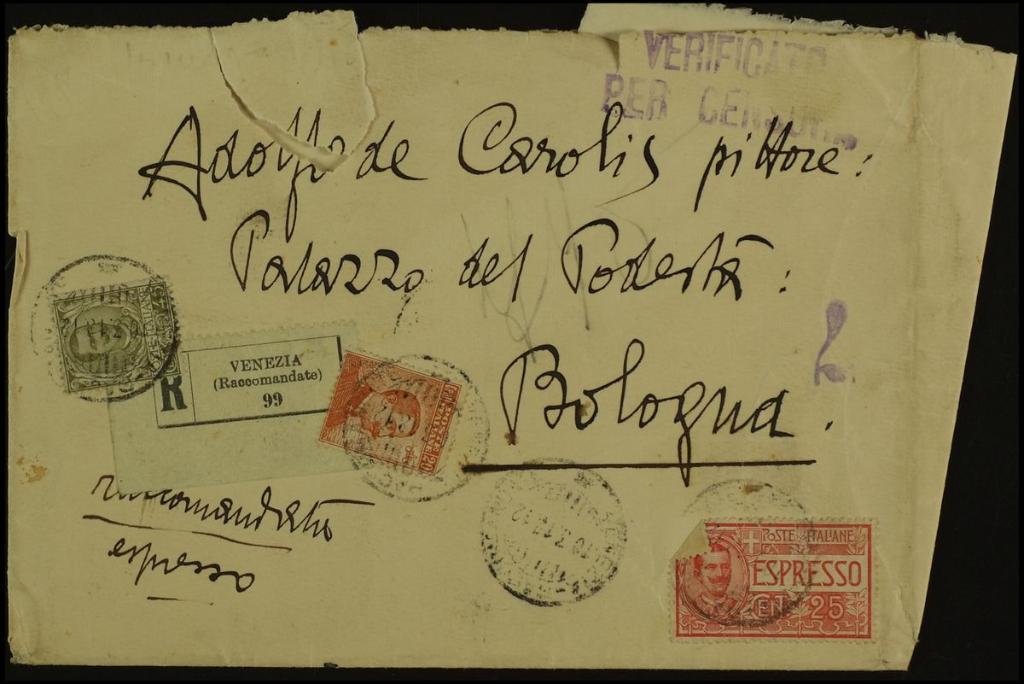 VERIFICATO
PER CENSURA
Adolfo de Carolis pittore:
Palazzo del Podestà:
Bologna.
R
VENEZIA
(Raccomandate)
99
raccomandata
espresso
POSTE ITALIANE
ESPRESSO
CENT. 25